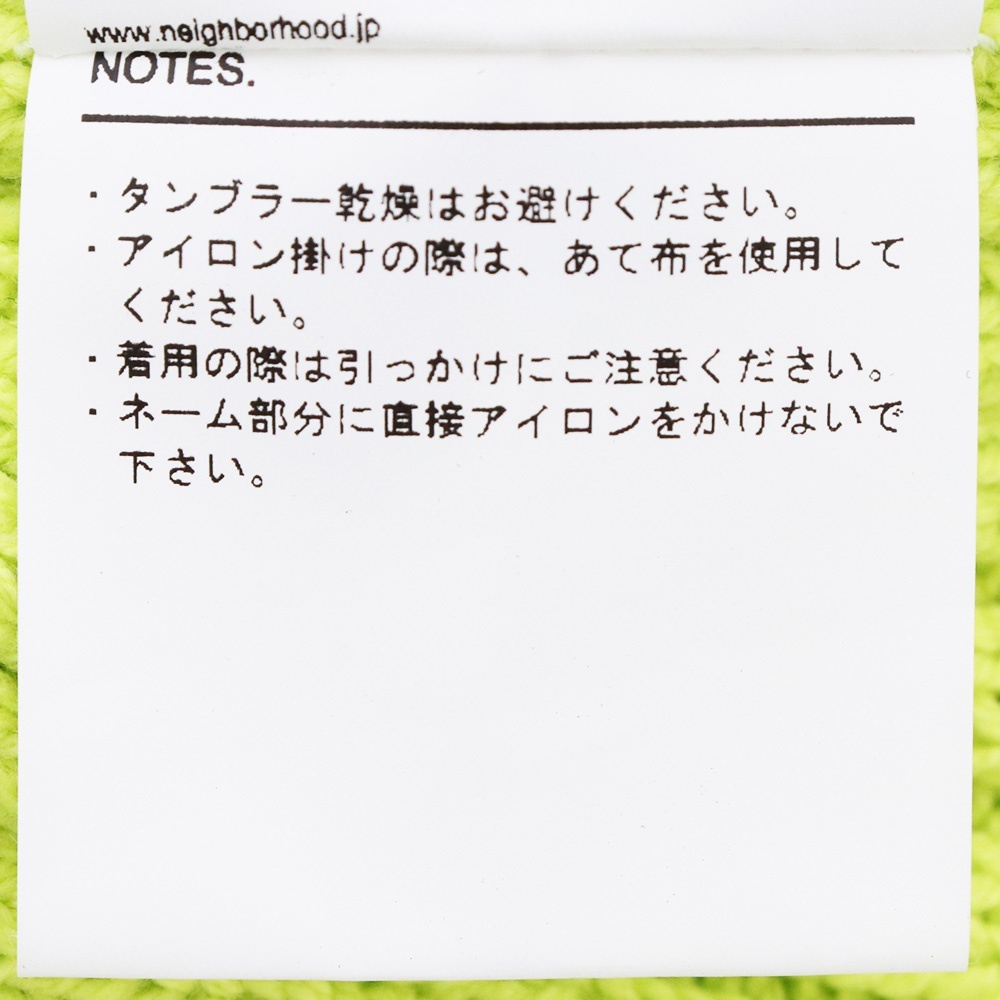 www.neighborhood.jp
NOTES.
・タンブラー乾燥はお避けください。
・アイロン掛けの際は、あて布を使用して
ください。
・着用の際は引っかけにご注意ください。
・ネーム部分に直接アイロンをかけないで
下さい。